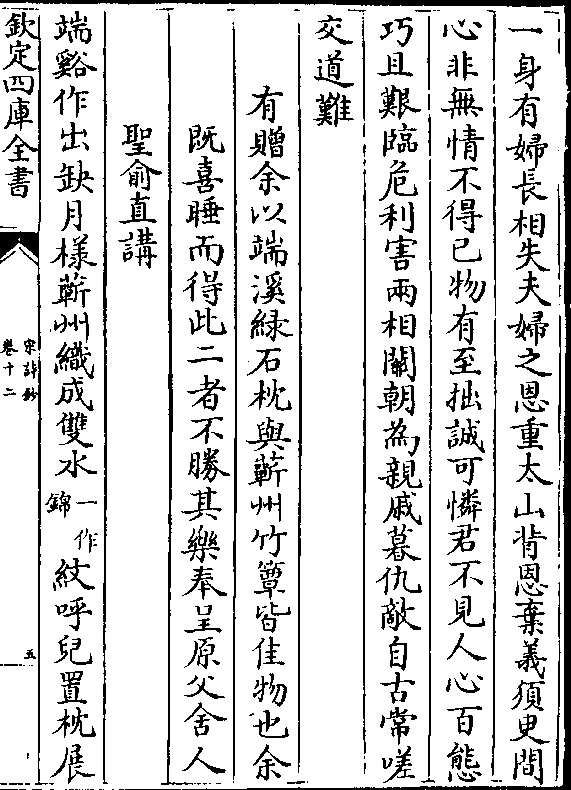 一身有婦長相失夫婦之恩重太山背恩棄義須臾間
心非無情不得已物有至拙誠可憐君不見人心百態
巧且艱臨危利害兩相關朝為親戚暮仇敵自古常嗟
交道難
有贈余以端溪緑石枕與蘄州竹簟皆佳物也余
既喜睡而得此二者不勝其樂奉呈原父舍人
聖俞直講
端谿作出缺月樣蘄州織成雙水一作錦紋呼兒置枕展
欽定四庫全書
宋詩鈔
卷十二
五